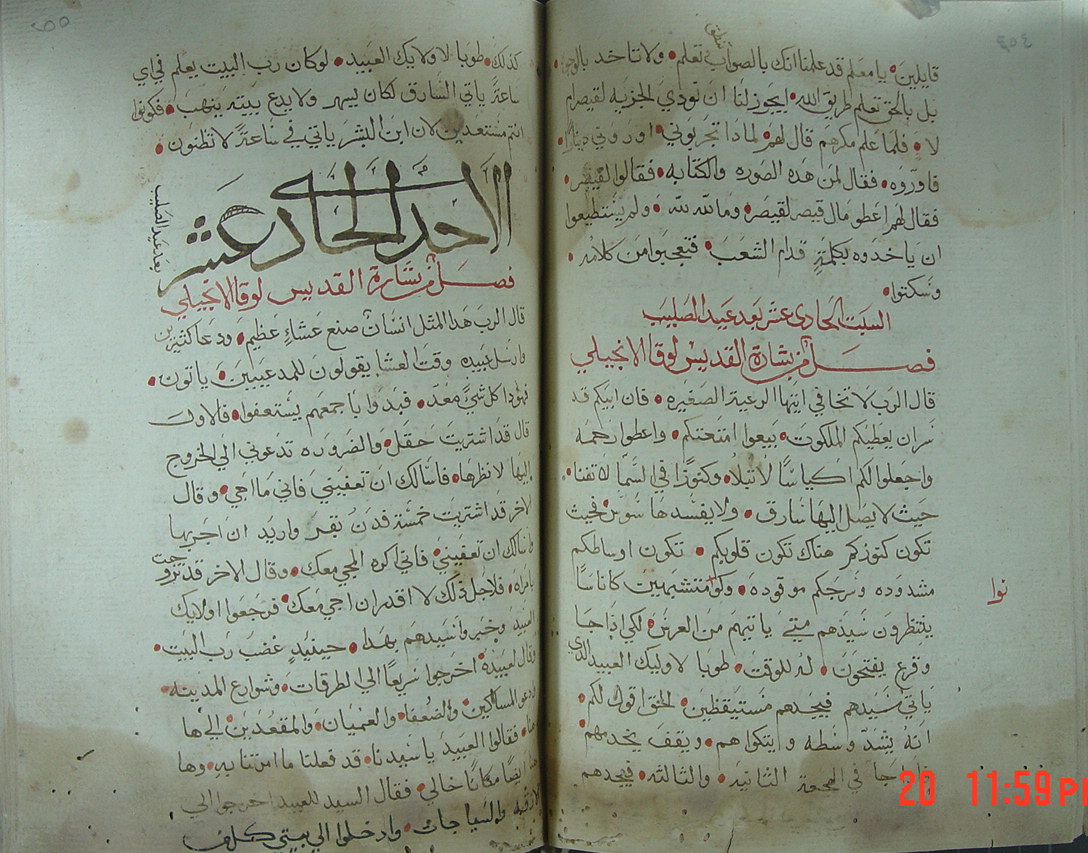 قايلين يا معلم قد علمنا انك بالصواب تنطق تعلم ولا تاخد بالوجوه
بل بالحق تعلم طريق الله ايجوز لنا ان نودي الجزيه لقيصر ام
لا فلما علم مكرهم قال لهم لماذا تجربوني اوروني دينارا
فاوروه فقال لمن هذه الصوره والكتابه فقالوا لقيصر
فقال لهم اعطو مال قيصر لقيصر وما لله لله ولم يستطيعوا
ان ياخدوه بكلمةٍ قدام الشعب فتعجبوا من كلامه
وسكتوا
السبت الحادى عشر بعد عيد الصليب
فصل من بشارة القديس لوقا الانجيلي
قال الرب لا تخافي ايتها الرعية الصغيره فان ابيكم قد
سر ان يعطيكم الملكوت بيعوا امتعتكم واعطوا رحمه
واجعلوا لكم اكياسًا لا تبلا وكنوزًا في السما لا تفنا
حيث لا يصل اليها سارق ولا يفسدها سوس فحيث
تكون كنوزكم هناك تكون قلوبكم تكون اوساطكم
مشدوده وسرجكم موقوده وكونوا متشبهين كاناسًا
ينتظرون سيدهم متي ياتيهم من العرس لكي اذا جا
وقرع يفتحون له للوقت طوبا لاوليك العبيد الذي
ياتي سيدهم فيجدهم مستيقظين الحق اقول لكم
انه يشد وسطه ويتكواهم ويقف يخدمهم
جا في الهجعة الثانيه والثالثه فيجدهم
كذلك طوبا لاولايك العبيد لو كان رب البيت يعلم في اي
ساعةً ياتي السارق لكان يسهر ولا يدع بيته ينهب فكونوا
انتم مستعدين لان ابن البشر ياتي في ساعةً لا تظنون
الاحد الحادي عشر
بعد عيد الصليب
فصل من بشارة القديس لوقا الانجيلي
قال الرب هذا المثل انسان صنع عشاءٍ عظيم ودعا كثيرين
وارسل عبيده وقت العشا يقولون للمدعيين ياتون
فهوذا كل شيً معد فبدوا باجمعهم يستعفوا فالاول
قال قد اشتريت حقل والضروره تدعوني الي الخروج
اليها لانظرها فاسالك ان تعفيني فاني ما اجي وقال
لاخر قد اشتريت خمسة فدن بقر واريد ان اجربها
واسالك ان تعفيني فاني اكره المجي معك وقال الاخر قد تزوجت
بامراه فلاجل ذلك لا اقدر ان اجي معك فرجعوا اوليك
العبيد وخبروا سيدهم بهذا حينيدٍ غضب رب البيت
وقال لعبيده اخرجوا سريعًا الي الطرقات وشوارع المدينه
ودعو المساكين والضعفا والعميان والمقعدين الي ها
هنا فقالوا العبيد يا سيدنا قد فعلنا ما امرتنا به وها
هنا ايضا مكانًا خالي فقال السيد للعبيد اخرجوا الي
الازقه والسياجات وادخلوا الي بيتي كلمن
20 11:59 P